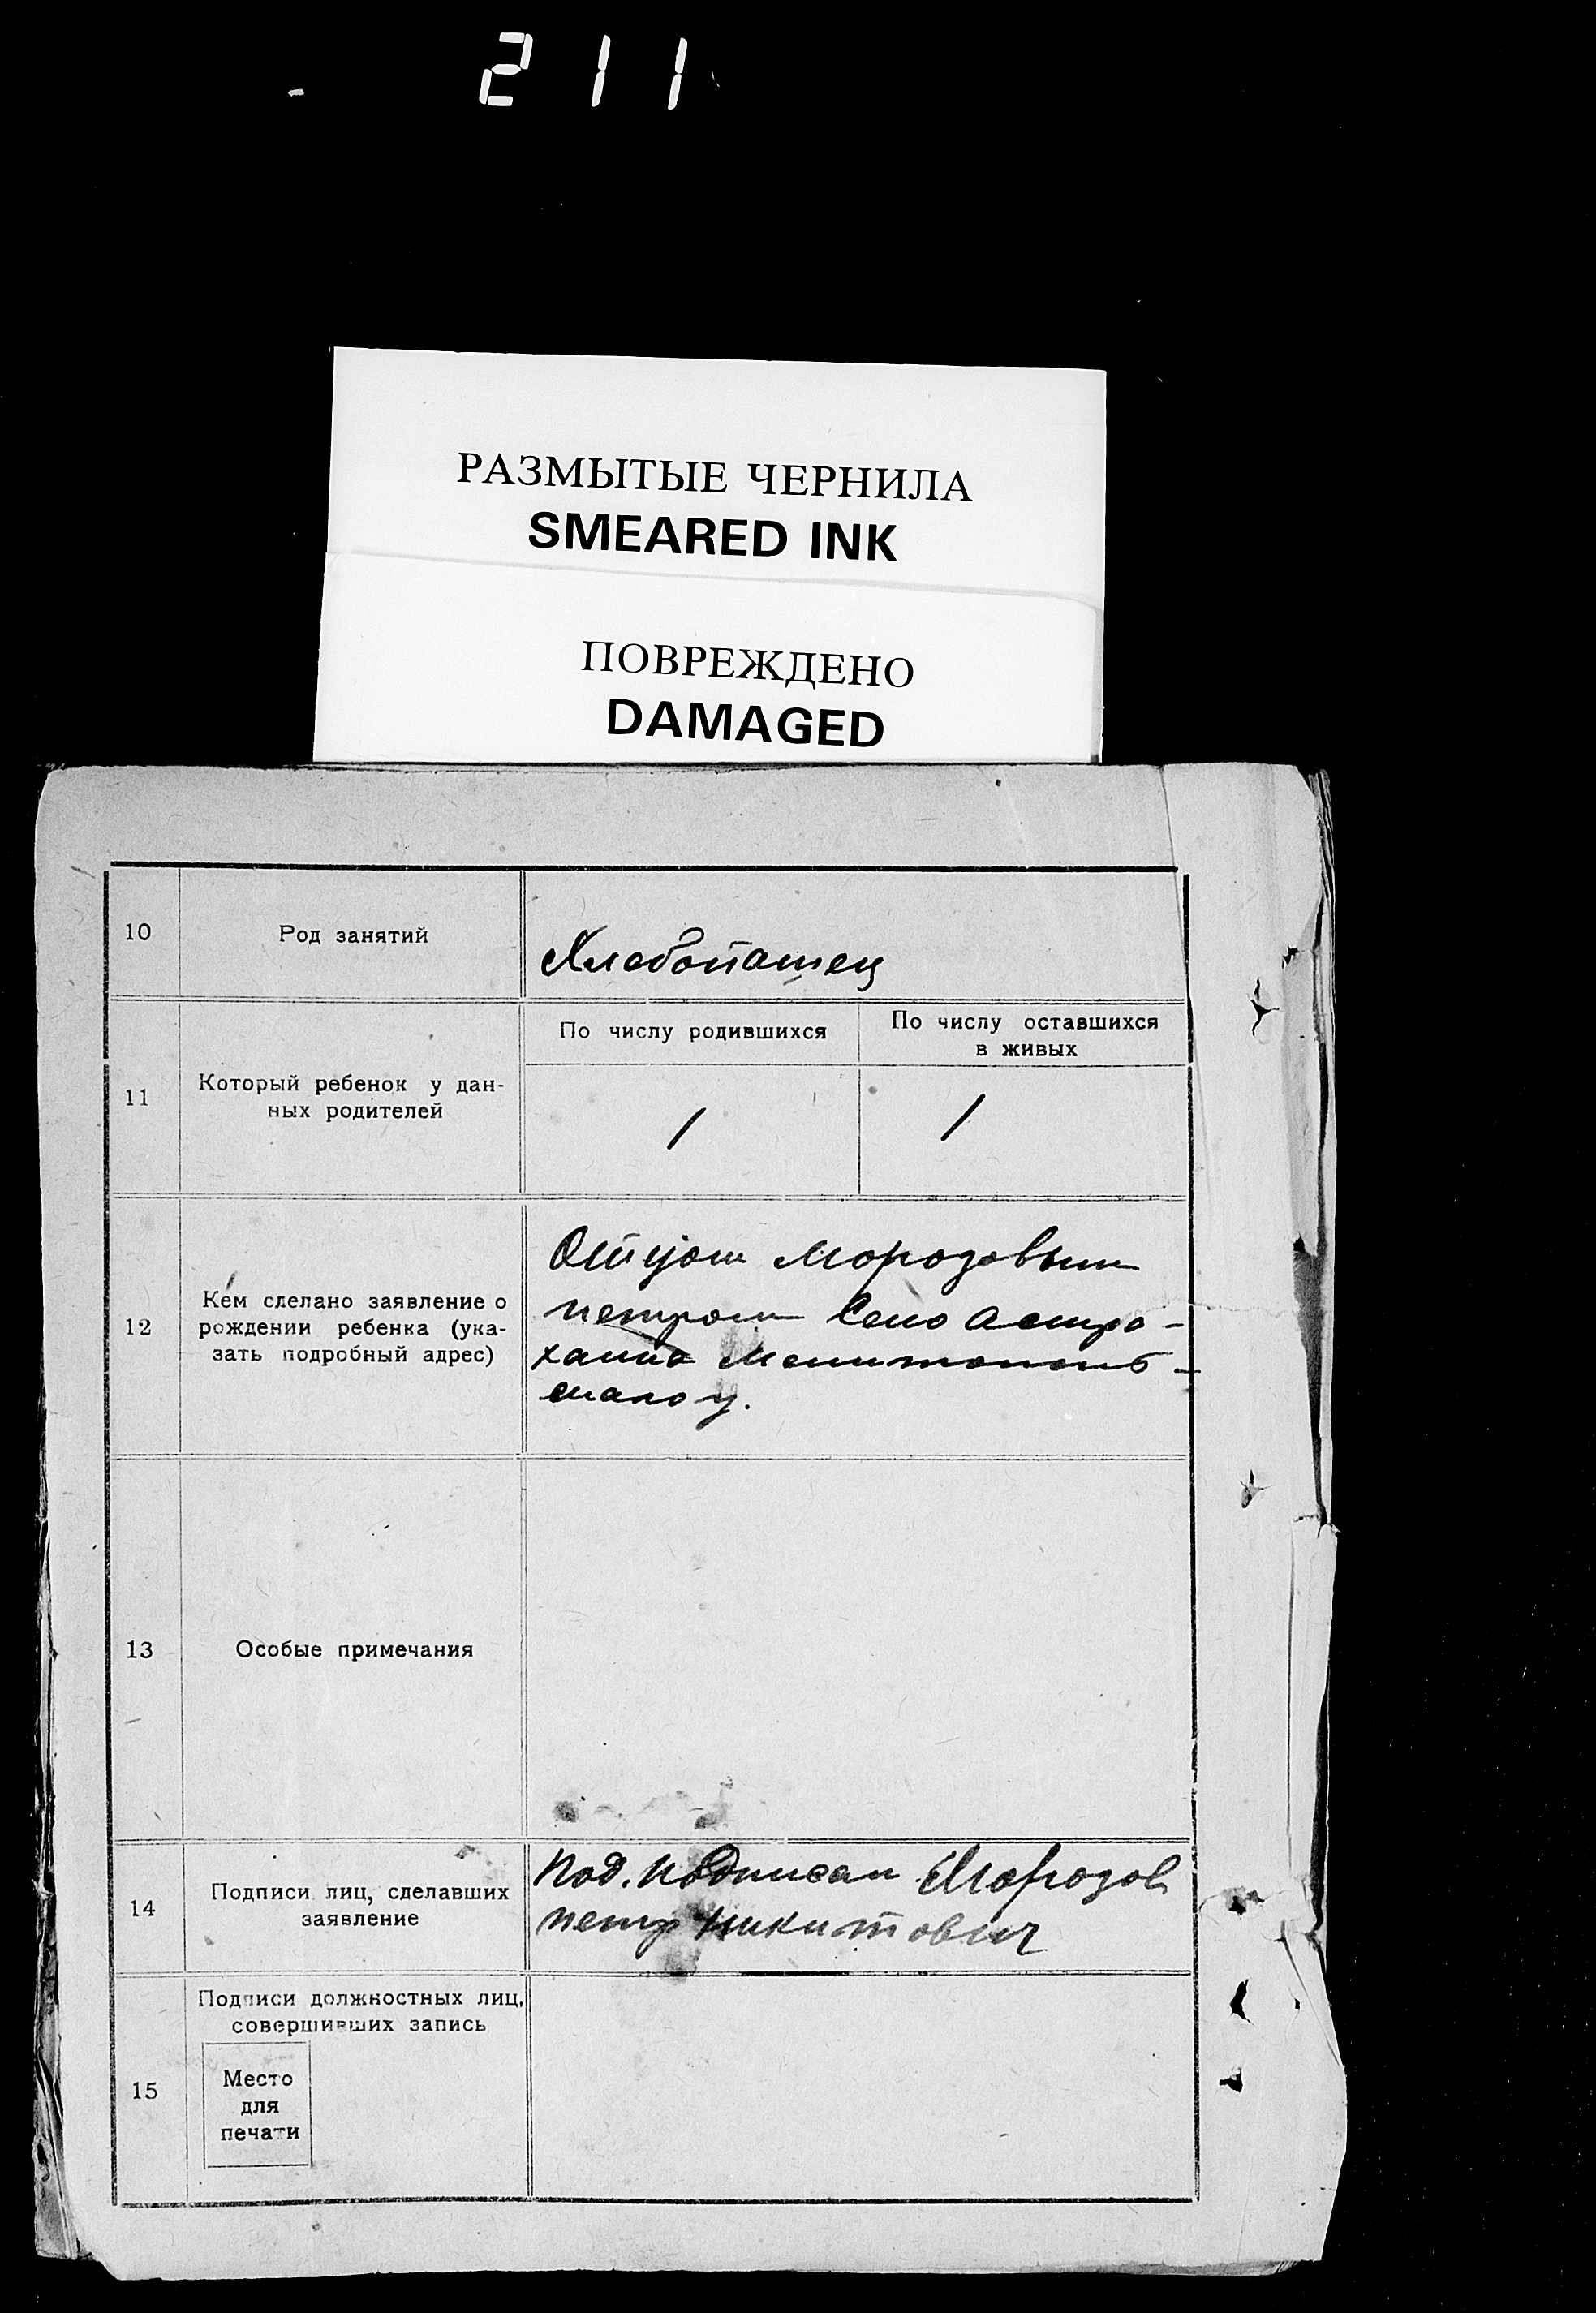 211
РАЗМЫТЫЕ ЧЕРНИЛА
SMEARED INK
ПОВРЕЖДЕНО
DAMAGED
10
Род занятий
Хлебопашец
11
Который ребенок у дан-
ных родителей
По числу родившихся
По числу оставшихся
в живых
1
1
12
Кем сделано заявление о
рождении ребенка (ука-
зать подробный адрес)
Отцом Морозовым
петром Село Астра-
ханка Мелитополь-
скаго у.
13
Особые примечания
14
Подписи лиц, сделавших
заявление
Под. подписал Морозов
петр Никитович
15
Подписи должностных лиц,
совершивших запись
Место
для
печати